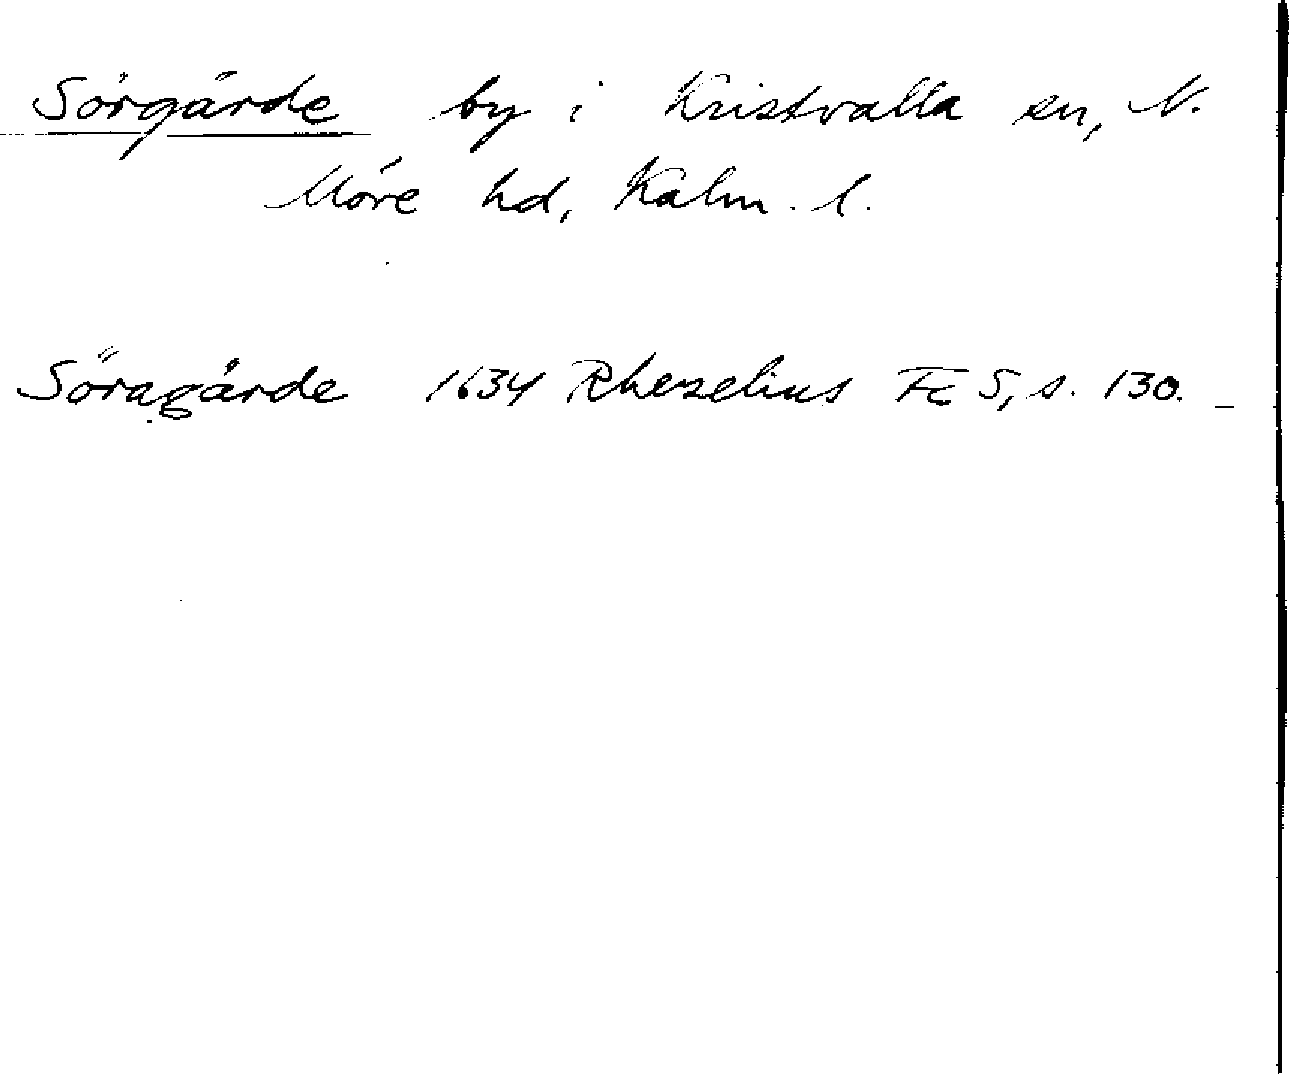 Sörgärde by i Kristvalla sn, N.
Möre hd, Kalm. l.
Söragärde 1634 Rhezelius Fc 5, s. 130.